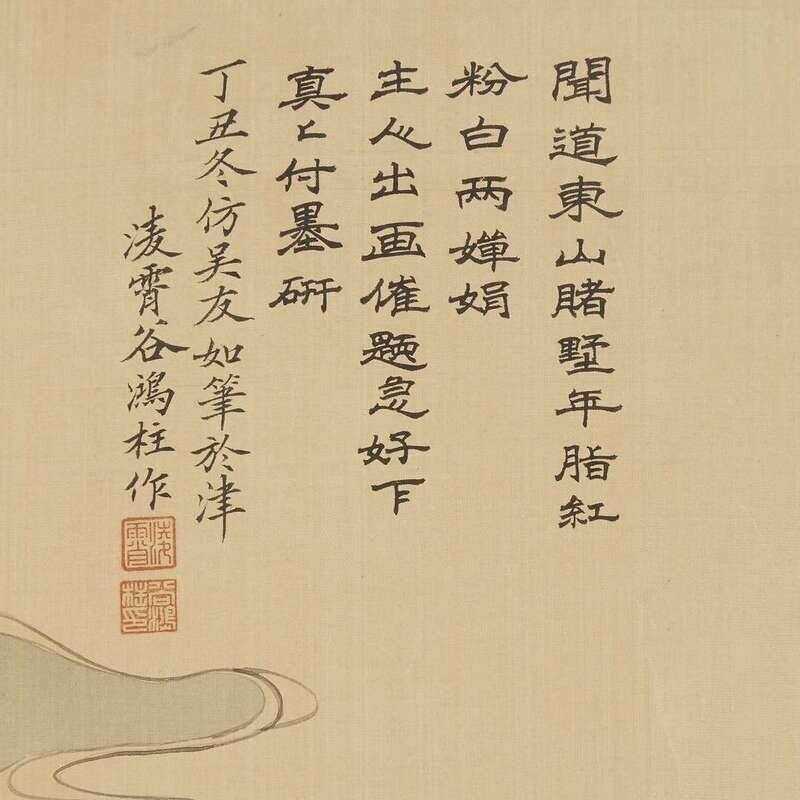 聞道東山賭墅年脂紅
粉白兩嬋娟
主人出画催題急好下
真〻付墨硏
丁丑冬仿吴友如筆於津
凌霄谷鴻柱作
凌霄
谷鴻柱印